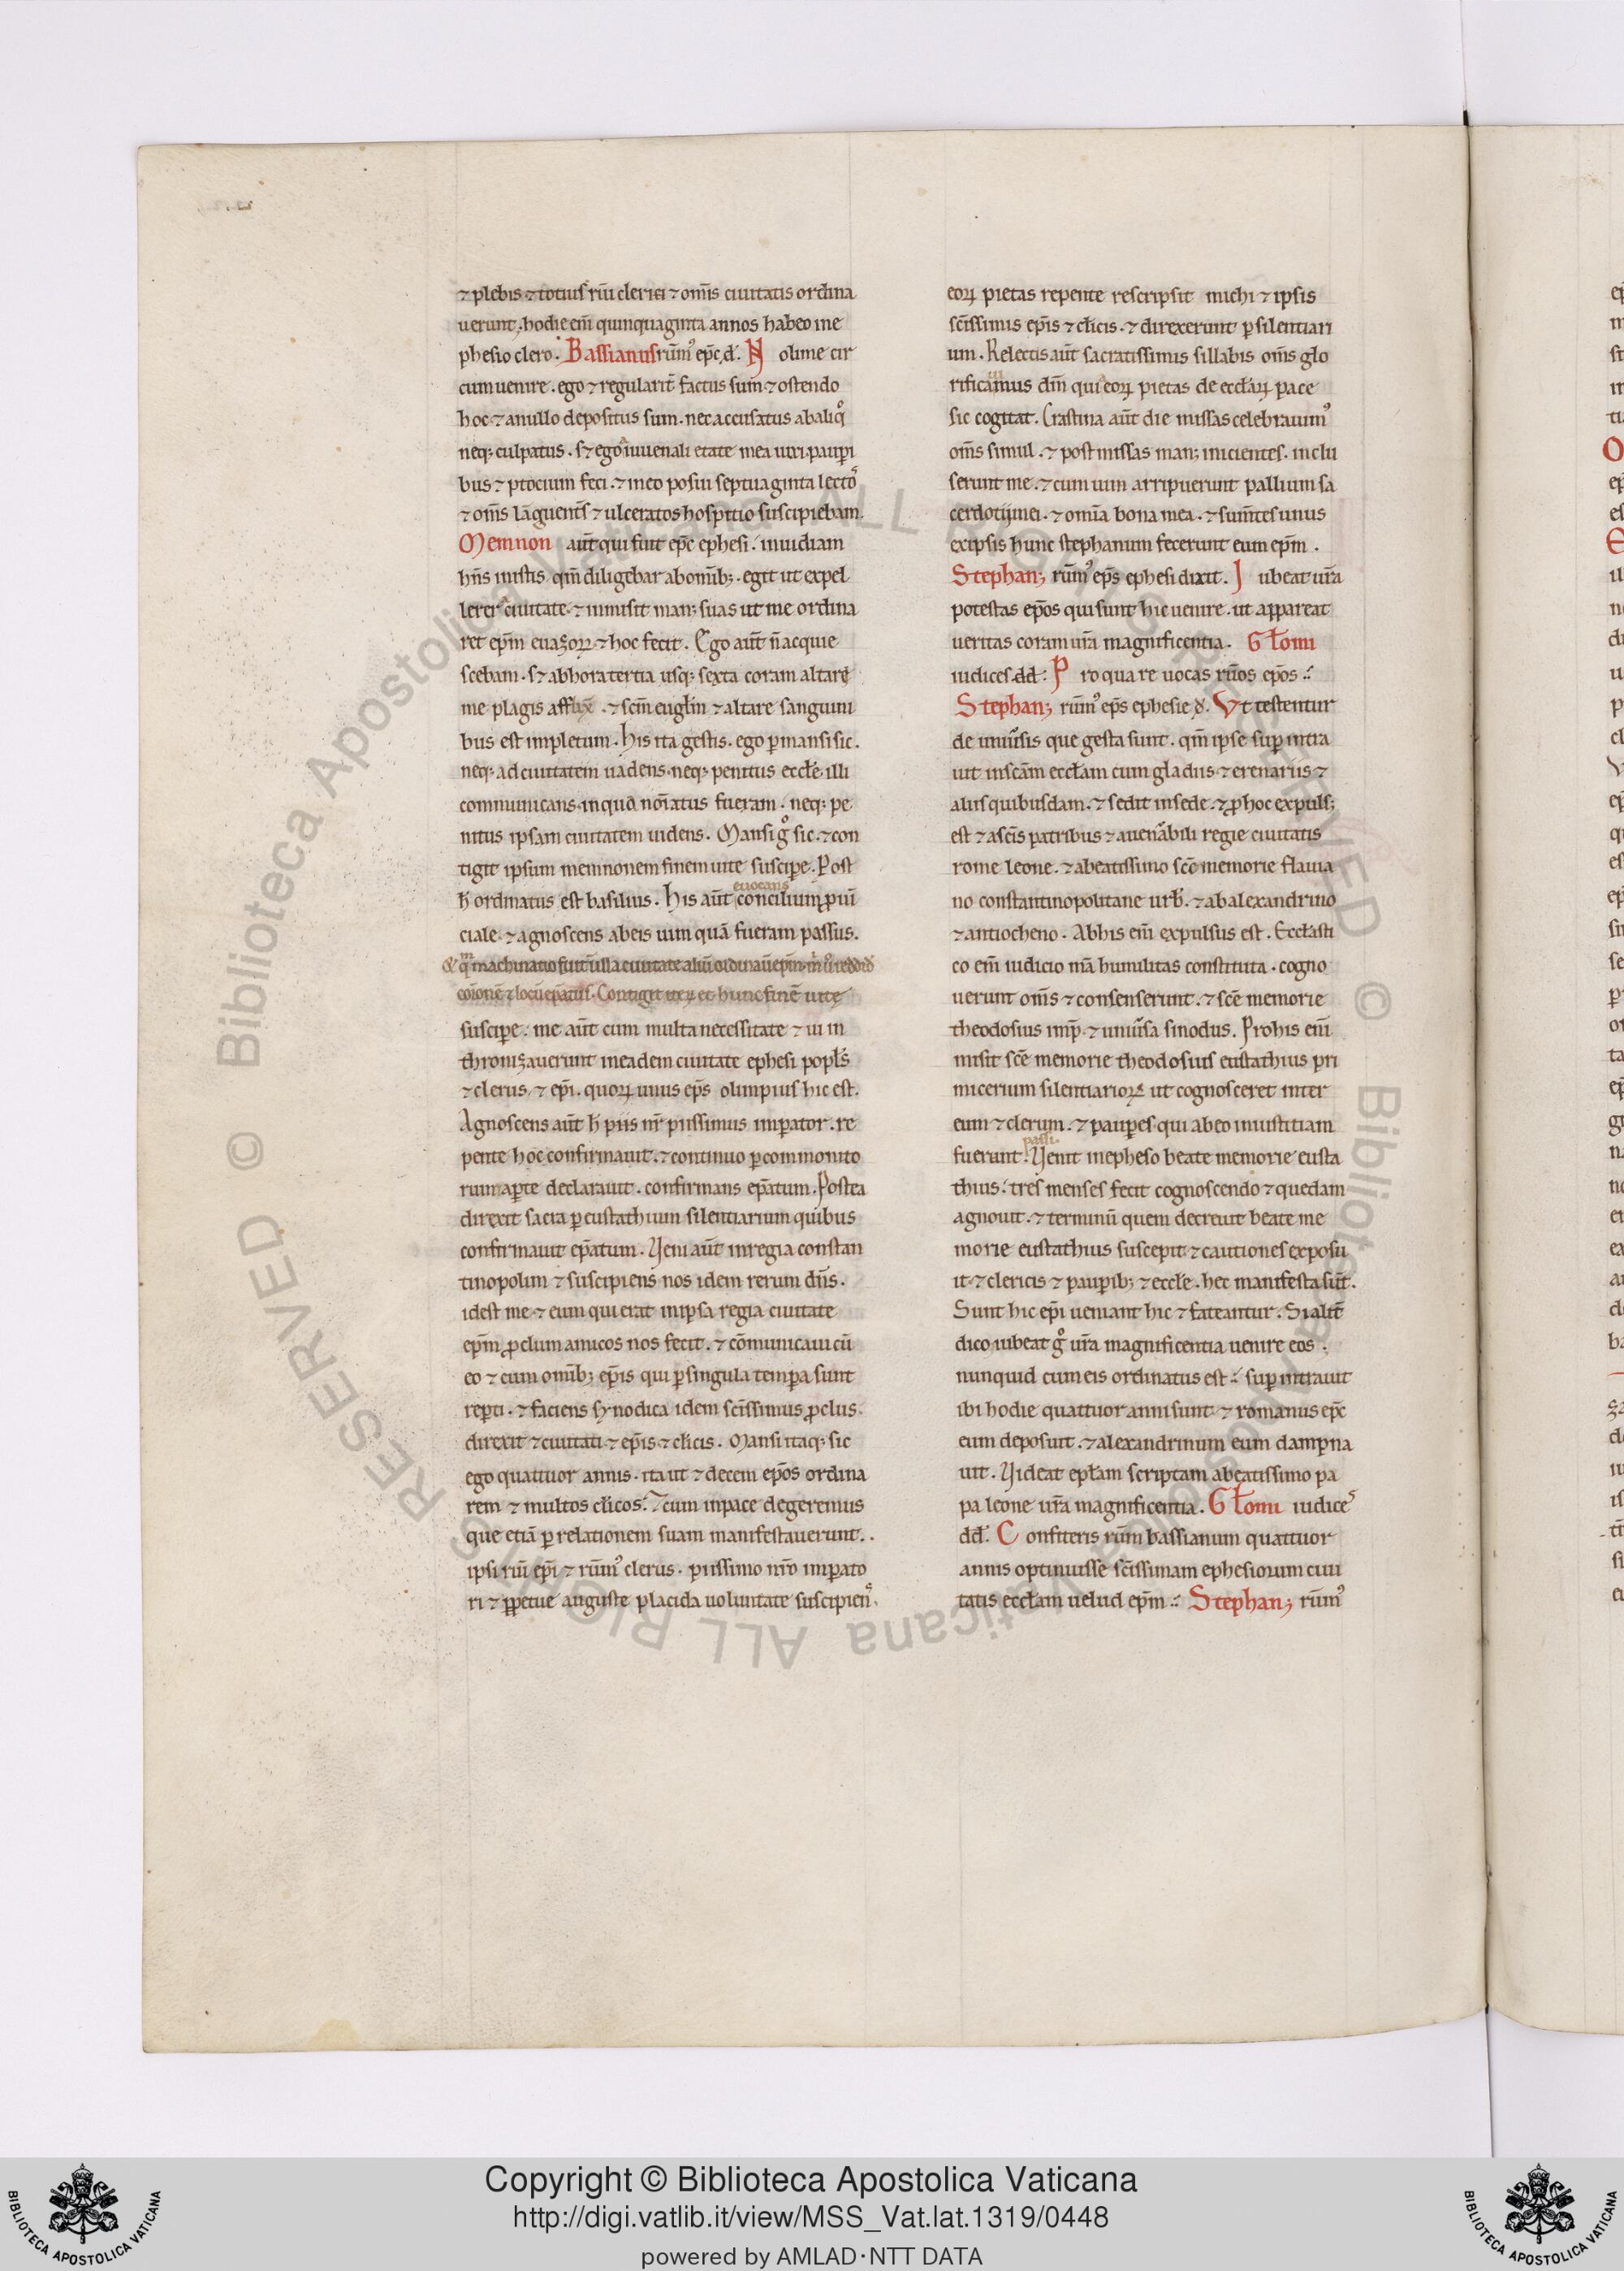 ⁊ plebis ⁊ totius rm̄i cleri ⁊ om̄is ciuitatis ordina
uerunt. hodie em̄ quinquaginta annos habeo me
phesio clero. Bassianus rūm᷒ ep̄c d̄. N olime cir
cumuenire. ego ⁊ regularit̄ factus sum. ⁊ ostendo
hoc. ⁊ a nullo depositus sum. nec accusatus ab aliqͦ
neq; culpatus. sꝫ ego iuuenali etate mea uixi. paup̄i
bus ⁊ ptocium feci. ⁊ in eo posui septuaginta lecto᷒
⁊ om̄s lāguent̄s ⁊ ulceratos hospitio suscipiebam.
Memnon aūt qui fuit ep̄c ephesi. inuidiam
hn̄s inistis qm̄ diligebar ab omib;. egit ut expel
lerer a ciuitate. ⁊ inmisit man; suas ut me ordina
ret ep̄m euazoꝝ. ⁊ hoc fecit. Ego aūt n̄ acquie
scebam. sꝫ ab hora tertia usq; sexta coram altare
me plagis afflix̄. ⁊ sc̄m eugl̄m ⁊ altare sanguini
bus est impletum. His ita gestis. ego ꝑmansi sic.
neq; ad ciuitatem uadens. neq; penitus eccl̄e illi
communicans. in qua noīatus fueram. neq; pe
nitus ipsam ciuitatem uidens. Mansi gͦ sic. ⁊ con
tigit ipsum memnonem finem uite suscipe. Post
h̄ ordinatus est basilius. His aūt euocans concilium ꝓuī
ciale. ⁊ agnoscens ab eis uim quā fueram passus.
& q̄ machinatio fuit in illa ciuitate aliū ordinau ep̄m. m u reddid
coīonē ⁊ locū ep̄atus. Contigit iteꝝ et hunc finē uitę
suscipe. me aūt cum multa necessitate ⁊ ui in
thronizauerunt in eadem ciuitate ephesi popl̄s
⁊ clerus. ⁊ ep̄i. quoꝝ unus ep̄s olimpius hic est.
Agnoscens aūt h̄ piis nr̄ piissimus imꝑator. re
pente hoc confirmauit. ⁊ continuo ꝑ commonito
rium aꝑte declarauit. confirmans ep̄atum. Postea
direxit sacra ꝑ eustathium silentiarium quibus
confirmauit ep̄atum. Veni aūt in regia constan
tinopolim ⁊ suscipiens nos idem rerum dn̄s.
idest me ⁊ eum qui erat in ipsa regia ciuitate
ep̄m ꝓclum amicos nos fecit. ⁊ cōmunicaui cū
eo ⁊ cum omib; ep̄is qui ꝑ singula tempa sunt
reꝑti. ⁊ faciens synodica idem sc̄issimus ꝓclus.
direxit ⁊ ciuitati ⁊ ep̄is ⁊ cl̄icis. Mansi itaq; sic
ego quattuor annis. ita ut ⁊ decem ep̄os ordina
rem ⁊ multos cl̄icos. ⁊ cum in pace degeremus
que etiā ꝑ relationem suam manifestauerunt.
ipsi rm̄i ep̄i ⁊ rūm᷒ clerus. piissimo nr̄o imꝑato
ri ⁊ ꝑpetue auguste placida uoluntate suscipien
eoꝝ pietas repente rescripsit michi ⁊ ipsis
sc̄issimis ep̄is ⁊ cl̄icis. ⁊ direxerunt ꝑ silentiari
um. Relectis aūt sacratissimis sillabis om̄s glo
rificamus dm̄ qui eoꝝ pietas de eccl̄aꝝ pace
sic cogitat. Crastina aūt die missas celebrauim᷒
om̄s simul. ⁊ post missas man; inicientes. inclu
serunt me. ⁊ cum uim arripuerunt pallium sa
cerdotij mei. ⁊ om̄ia bona mea. ⁊ sum̄tes unus
ex ipsis hunc stephanum fecerunt eum ep̄m.
Stephan; rūm᷒ ep̄s ephesi dixit. I ubeat ur̄a
potestas ep̄os qui sunt hic uenire. ut appareat
ueritas coram ur̄a magnificentia. Gl̄omi
iudices dd̄: P ro qua re uocas rm̄os ep̄os.
Stephan; rūm᷒ ep̄s ephesie d̄. Vt testentur
de uniūsis que gesta sunt. qm̄ ipse suꝑ intra
uit in sc̄am eccl̄am cum gladiis ⁊ erenariis ⁊
aliis quibusdam. ⁊ sedit in sede. ⁊ ꝓ hoc expuls;
est ⁊ a sc̄is patribus ⁊ a uenābili regie ciuitatis
rome leone. ⁊ a beatissimo sc̄e memorie flauia
no constantinopolitane urb̄. ⁊ ab alexandrino
⁊ antiocheno. Ab his em̄ expulsus est. Eccl̄asti
co em̄ iudicio nr̄a humilitas constituta. cogno
uerunt om̄s ⁊ consenserunt. ⁊ sc̄e memorie
theodosius imp̄. ⁊ uniūsa sinodus. Pro his em̄
misit sc̄e memorie theodosius eustathius pri
micerium silentiarioꝝ ut cognosceret inter
eum ⁊ clerum. ⁊ pauꝑes qui ab eo iniustitiam
passi. fuerunt. Venit in epheso beate memorie eusta
thius. tres menses fecit cognoscendo ⁊ quedam
agnouit. ⁊ terminū quem decreuit beate me
morie eustathius suscepit ⁊ cautiones exposu
it. ⁊ clericis ⁊ pauꝑib; ⁊ eccl̄e. hec manifesta sūt.
Sunt hic ep̄i ueniant hic ⁊ fateantur. Si alit̄
dico. iubeat gͦ ur̄a magnificentia uenire eos.
nunquid cum eis ordinatus est. suꝑ intrauit
ibi hodie quattuor anni sunt. ⁊ romanus ep̄c
eum deposuit. ⁊ alexandrinum eum dampna
uit. Videat epl̄am scriptam a beatissimo pa
pa leone ur̄a magnificentia. Gl̄omi iudice᷒
dd̄. C onfiteris rūm bassianum quattuor
annis optinuisse sc̄issimam ephesiorum ciui
tatis eccl̄am uelud ep̄m. Stephan; rūm᷒
© Biblioteca Apostolica Vaticana ALL RIGHTS RESERVED
Copyright © Biblioteca Apostolica Vaticana
http://digi.vatlib.it/view/MSS_Vat.lat.1319/0448
powered by AMLAD·NTT DATA
BIBLIOTECA APOSTOLICA VATICANA
BIBLIOTECA APOSTOLICA VATICANA